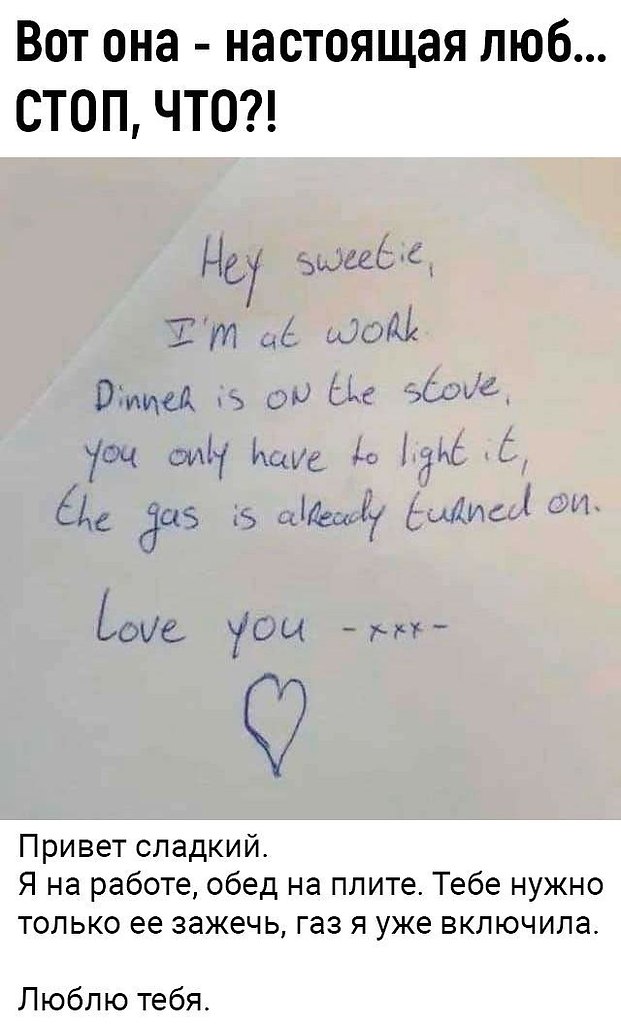 Вот она - настоящая люб...
СТОП, ЧТО?!
Hey sweetie,
I'm at work
Dinner is on the stove,
you only have to light it,
the gas is already turned on.
Love you -xxx-
Привет сладкий.
Я на работе, обед на плите. Тебе нужно
только ее зажечь, газ я уже включила.
Люблю тебя.